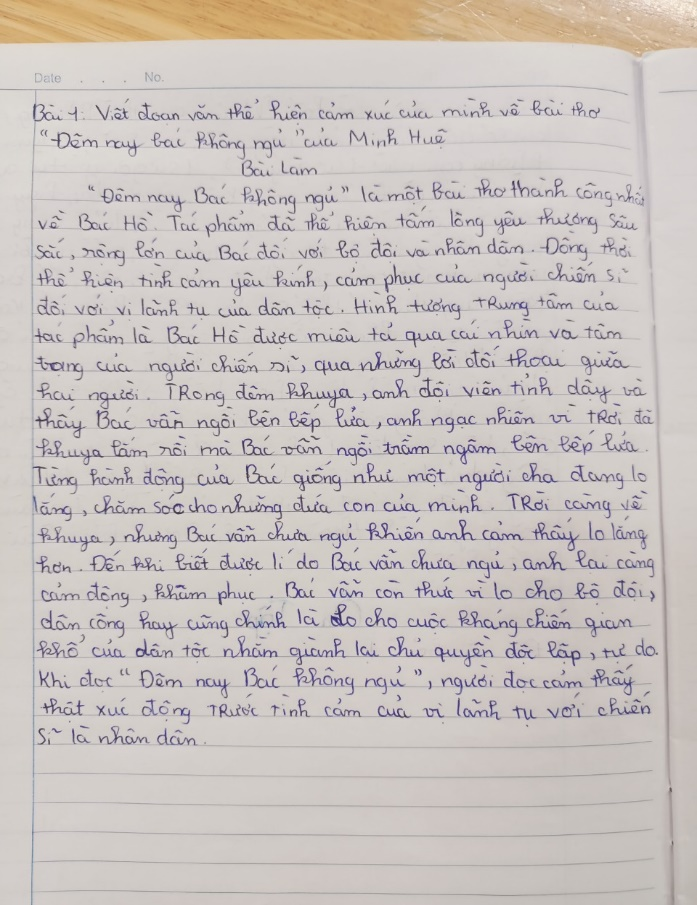 Date . . . No.
Bài 1: Viết đoạn văn thể hiện cảm xúc của mình về bài thơ
"Đêm nay bác không ngủ" của Minh Huệ
Bài Làm
"Đêm nay Bác không ngủ" là một bài thơ thành công nhất
về Bác Hồ. Tác phẩm đã thể hiện tấm lòng yêu thương sâu
sắc, rộng lớn của Bác đối với bộ đội và nhân dân. Đồng thời
thể hiện tình cảm yêu kính, cảm phục của người chiến sĩ
đối với vị lãnh tụ của dân tộc. Hình tượng tRung tâm của
tác phẩm là Bác Hồ được miêu tả qua cái nhìn và tâm
trạng của người chiến sĩ, qua những lời đối thoại giữa
hai người. TRong đêm khuya, anh đội viên tỉnh dậy và
thấy Bác vẫn ngồi bên bếp lửa, anh ngạc nhiên vì tRời đã
khuya lắm rồi mà Bác vẫn ngồi trầm ngâm bên bếp lửa.
Từng hành động của Bác giống như một người cha đang lo
lắng, chăm sóc cho những đứa con của mình. TRời càng về
khuya, nhưng Bác vẫn chưa ngủ khiến anh cảm thấy lo lắng
hơn. Đến khi biết được lí do Bác vẫn chưa ngủ, anh lại càng
cảm động, khâm phục. Bác vẫn còn thức vì lo cho bộ đội,
dân công hay cũng chính là lo cho cuộc kháng chiến gian
khổ của dân tộc nhằm giành lại chủ quyền độc lập, tự do.
Khi đọc "Đêm nay Bác không ngủ", người đọc cảm thấy
thật xúc động TRước tình cảm của vị lãnh tụ với chiến
sĩ là nhân dân.